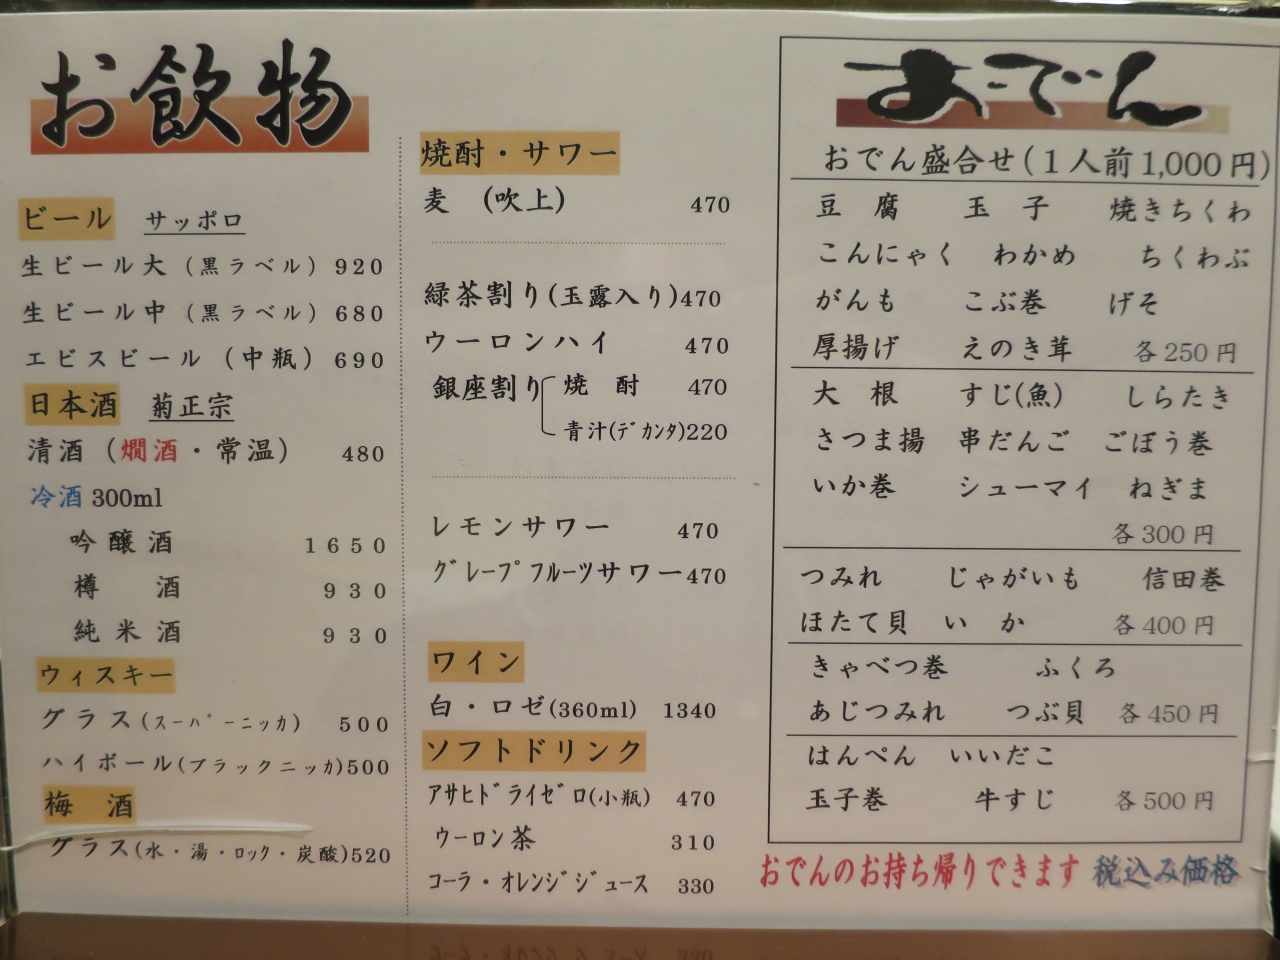 お飲物
ビール サッポロ
生ビール大(黒ラベル) 920
生ビール中(黒ラベル) 680
エビスビール(中瓶) 690
日本酒 菊正宗
清酒(燗酒・常温) 480
冷酒 300ml
吟醸酒 1650
樽 酒 930
純米酒 930
ウィスキー
グラス(スーパーニッカ) 500
ハイボール(ブラックニッカ)500
梅 酒
グラス(水・湯・ロック・炭酸)520
焼酎・サワー
麦 (吹上) 470
緑茶割り(玉露入り)470
ウーロンハイ 470
銀座割り 焼 酎 470
青汁(デカンタ)220
レモンサワー 470
グレープフルーツサワー470
ワイン
白・ロゼ(360ml) 1340
ソフトドリンク
アサヒドライゼロ(小瓶) 470
ウーロン茶 310
コーラ・オレンジジュース 330
おでん
おでん盛合せ(1人前1,000円)
豆 腐 玉 子 焼きちくわ
こんにゃく わかめ ちくわぶ
がんも こぶ巻 げそ
厚揚げ えのき茸 各250円
大 根 すじ(魚) しらたき
さつま揚 串だんご ごぼう巻
いか巻 シューマイ ねぎま
各300円
つみれ じゃがいも 信田巻
ほたて貝 い か 各400円
きゃべつ巻 ふくろ
あじつみれ つぶ貝 各450円
はんぺん いいだこ
玉子巻 牛すじ 各500円
おでんのお持ち帰りできます 税込み価格